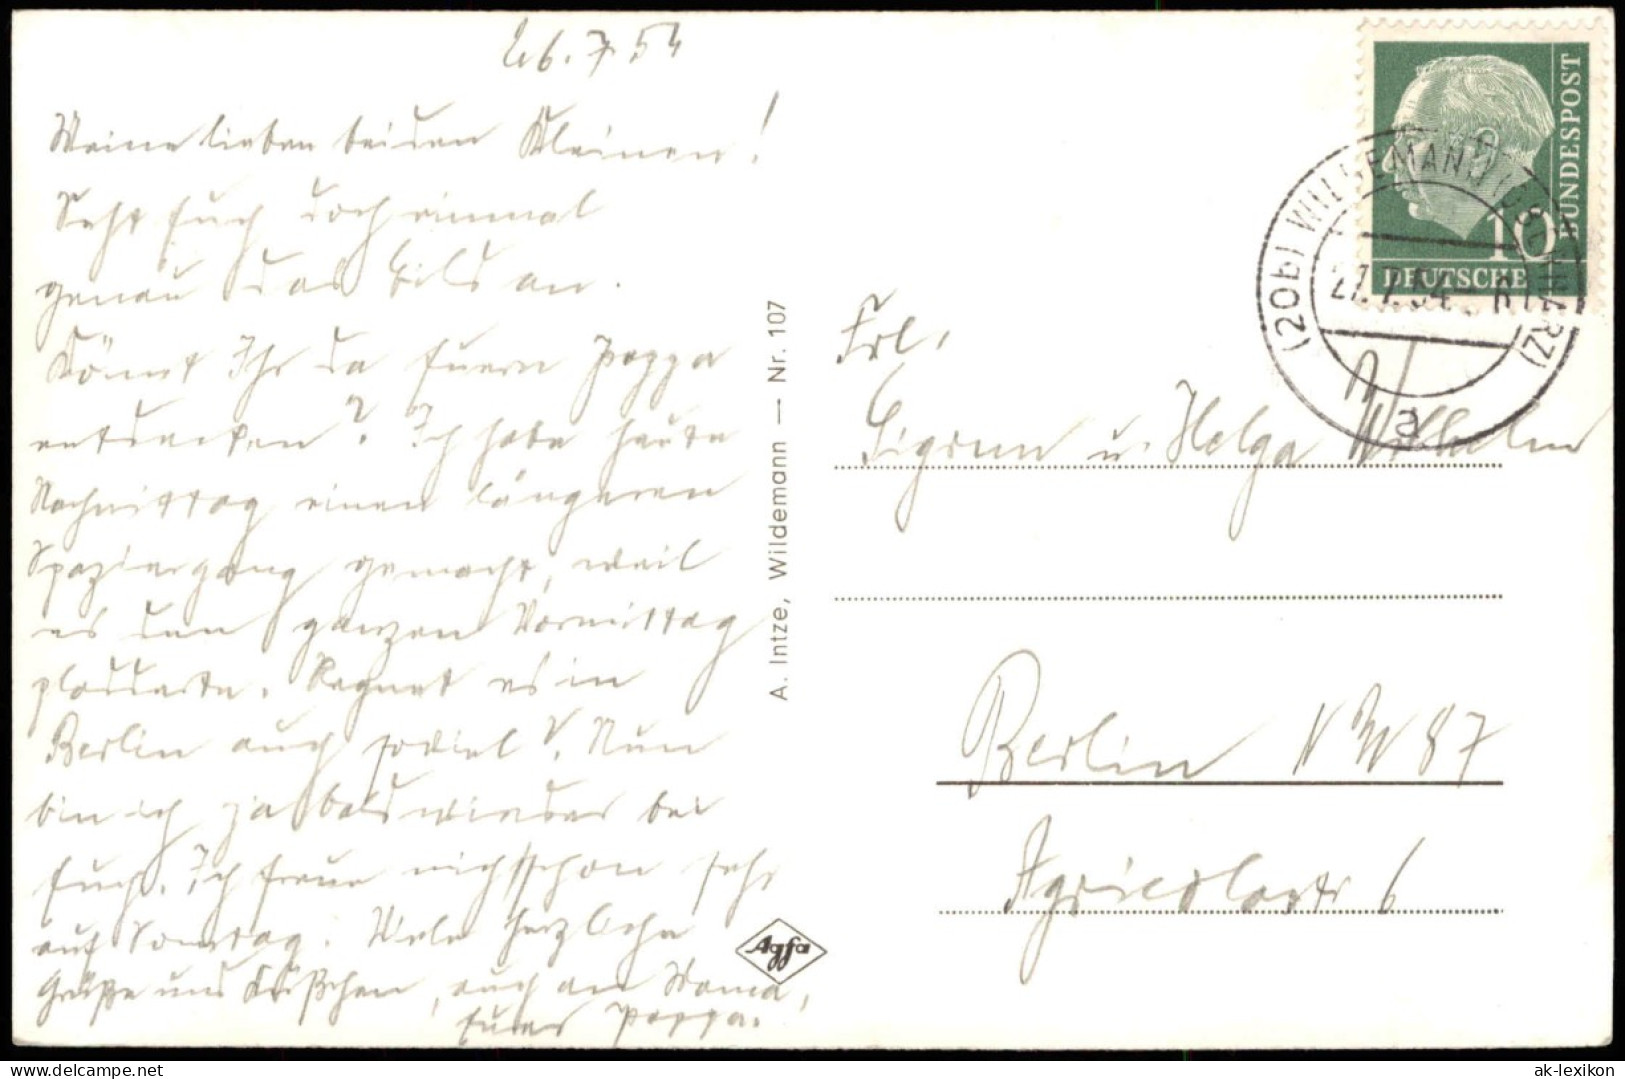 26.7.54
Meine lieben beiden Kleinen!
Seht Euch doch einmal
genau das Bild an.
Könnt Ihr da Euern Pappa
entdecken? Ich habe heute
Nachmittag einen längeren
Spaziergang gemacht, weil
es den ganzen Vormittag
pladderte. Regnet es in
Berlin auch soviel? Nun
bin ich ja bald wieder bei
Euch. Ich freue mich schon sehr
auf Sonntag. Viele herzliche
Grüße und Küßchen, auch an Mama,
Euer Pappa.
A. Intze, Wildemann — Nr. 107
Agfa
DEUTSCHE BUNDESPOST
10
(20b) WILDEMANN (OBERHARZ)
27.7.54
a
Frl.
Sigrun u. Helga Wilhelm
Berlin NW 87
Agricolastr 6
ak-ansichtskarten.de
ak-lexikon